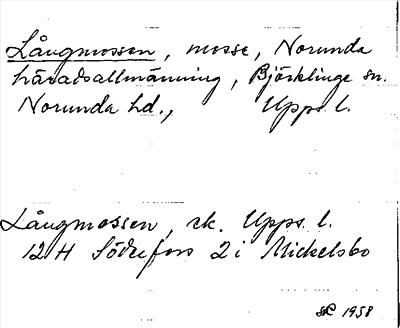 Långmossen, mosse, Norunda
häradsallmänning, Björklinge sn.
Norunda hd., Upps. l.
Långmossen, ek. Upps. l.
12 H Söderfors 2 i Mickelsbo
1958